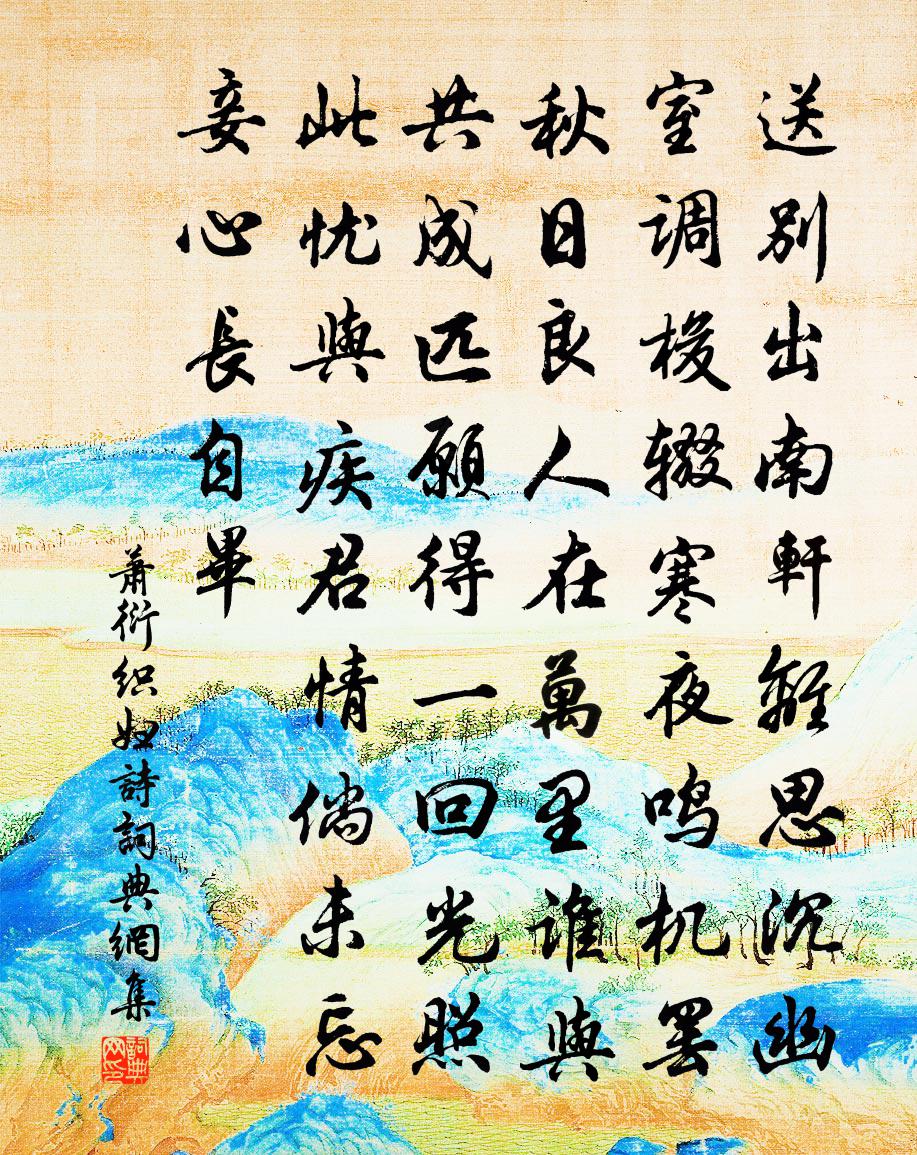 送别出南軒離思沉幽
室调梭辍寒夜鸣机罢
秋日良人在萬里谁與
共成匹願得一回光照
此忧與疾君情倘未忘
妾心長自畢
蕭衍织婦詩詞典網集
詞典網印